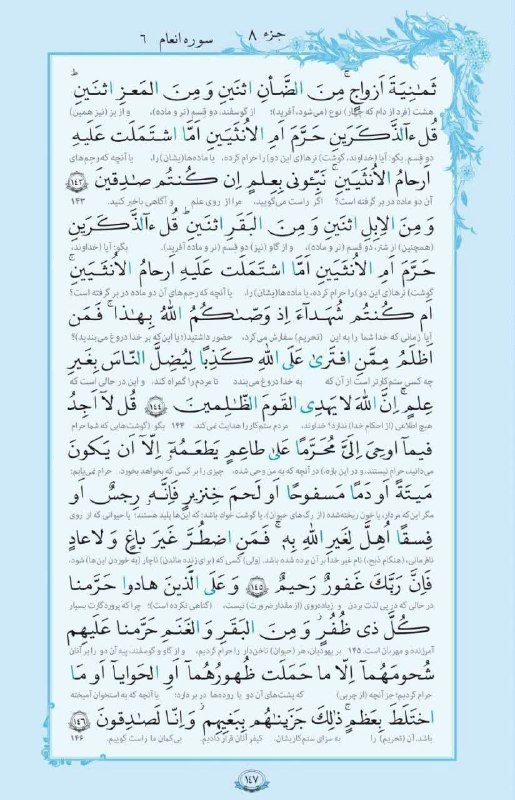 جزء ۸
سوره انعام ۶
ثَمٰنِيَةَ اَزواجٍ ۚ مِنَ الضَّأنِ اثنَينِ وَ مِنَ المَعزِ اثنَينِ ۗ
هشت (فرد از دام که چهار) نوع (می‌شود، آفرید)؛ از گوسفند، دو قسم (نر و ماده)، و از بز (نیز همین)
قُل ءآلذَّكَرَينِ حَرَّمَ اَمِ الاُنثَيَينِ اَمَّا اشتَمَلَت عَلَيهِ
دو قسم. بگو: آیا (خداوند، گوشت) نرها(ی این دو) را حرام کرده، یا ماده‌ها(یشان) را، یا آنچه که رحم‌های
اَرحامُ الاُنثَيَينِ ۖ نَبِّـُٔونی بِعِلمٍ اِن كُنتُم صٰدِقينَ ﴿١٤٣﴾
آن دو ماده در بر گرفته است؟ اگر راست می‌گویید، مرا از روی علم و آگاهی باخبر کنید. ۱۴۳
وَ مِنَ الاِبِلِ اثنَينِ وَ مِنَ البَقَرِ اثنَينِ ۗ قُل ءآلذَّكَرَينِ
(همچنین) از شتر، دو قسم (نر و ماده)، و از گاو (نیز) دو قسم (نر و ماده آفرید). بگو: آیا (خداوند،
حَرَّمَ اَمِ الاُنثَيَينِ اَمَّا اشتَمَلَت عَلَيهِ اَرحامُ الاُنثَيَينِ ۖ
گوشت) نرها(ی این دو) را حرام کرده، یا ماده‌ها(یشان) را، یا آنچه که رحم‌های آن دو ماده در بر گرفته است؟
اَم كُنتُم شُهَدآءَ اِذ وَصّٰىكُمُ اللّٰهُ بِهٰذا ۚ فَمَن
آیا زمانی که خدا شما را به این (تحریم) سفارش می‌کرد، حضور داشتید؟ (یا این که بر خدا دروغ می‌بندید)؟
اَظلَمُ مِمَّنِ افتَرىٰ عَلَى اللّٰهِ كَذِبًا لِيُضِلَّ النّاسَ بِغَيرِ
چه کسی ستم‌کارتر است از آن که به خدا دروغ می‌بندد تا مردم را گمراه کند، و این در حالی است که
عِلمٍ ۗ اِنَّ اللّٰهَ لا يَهدِی القَومَ الظّٰلِمينَ ﴿١٤٤﴾ قُل لآ اَجِدُ
هیچ اطلاعی (از احکام خدا) ندارد؟ خداوند، مردم ستم‌کار را هدایت نمی‌کند. ۱۴۴ بگو: (گوشت‌هایی که شما حرام
فيمآ اوحِیَ اِلَیَّ مُحَرَّمًا عَلىٰ طاعِمٍ يَطعَمُهٗٓ اِلّآ اَن يَكونَ
می‌دانید، حرام نیستند، و در این باره،) در آنچه که به من وحی شده، چیزی را بر کسی که بخواهد بخورد، حرام نمی‌یابم؛
مَيتَةً اَو دَمًا مَسفوحًا اَو لَحمَ خِنزيرٍ فَاِنَّهٗ رِجسٌ اَو
مگر این‌که مردار، یا خون ریخته‌شده (از رگ‌های حیوان)، یا گوشت خوک باشد؛ که این‌ها پلید هستند؛ یا حیوانی که از روی
فِسقًا اُهِلَّ لِغَيرِ اللّٰهِ بِهٖ ۚ فَمَنِ اضطُرَّ غَيرَ باغٍ وَ لا عادٍ
نافرمانی، (هنگام ذبح،) نام غیر خدا بر آن برده شده باشد. (ولی) کسی که (برای زنده ماندن) ناچار (به خوردن این‌ها) شود،
فَاِنَّ رَبَّكَ غَفورٌ رَحيمٌ ﴿١٤٥﴾ وَ عَلَى الَّذينَ هادوا حَرَّمنا
در حالی که در پی لذت بردن و زیاده‌روی (از مقدار ضرورت) نیست، (گناهی نکرده است)؛ چرا که پروردگارت بسیار
كُلَّ ذی ظُفُرٍ ۖ وَ مِنَ البَقَرِ وَ الغَنَمِ حَرَّمنا عَلَيهِم
آمرزنده و مهربان است. ۱۴۵ بر یهودیان، هر (حیوان) ناخن‌دار را حرام کردیم، و از گاو و گوسفند، پیه آن دو را بر آنان
شُحومَهُمآ اِلّا ما حَمَلَت ظُهورُهُمآ اَوِ الحَوايآ اَو مَا
حرام کردیم؛ جز آنچه (از چربی) که پشت‌های آن دو یا روده‌ها در بر دارد؛ یا آنچه که به استخوان آمیخته
اختَلَطَ بِعَظمٍ ۚ ذٰلِكَ جَزَينٰهُم بِبَغيِهِم ۖ وَ اِنّا لَصٰدِقونَ ﴿١٤٦﴾
باشد. آن (تحریم) را به سزای ستم‌کاریشان، کیفر آنان قرار دادیم. بی‌گمان ما راست گوییم. ۱۴۶
١٤٧